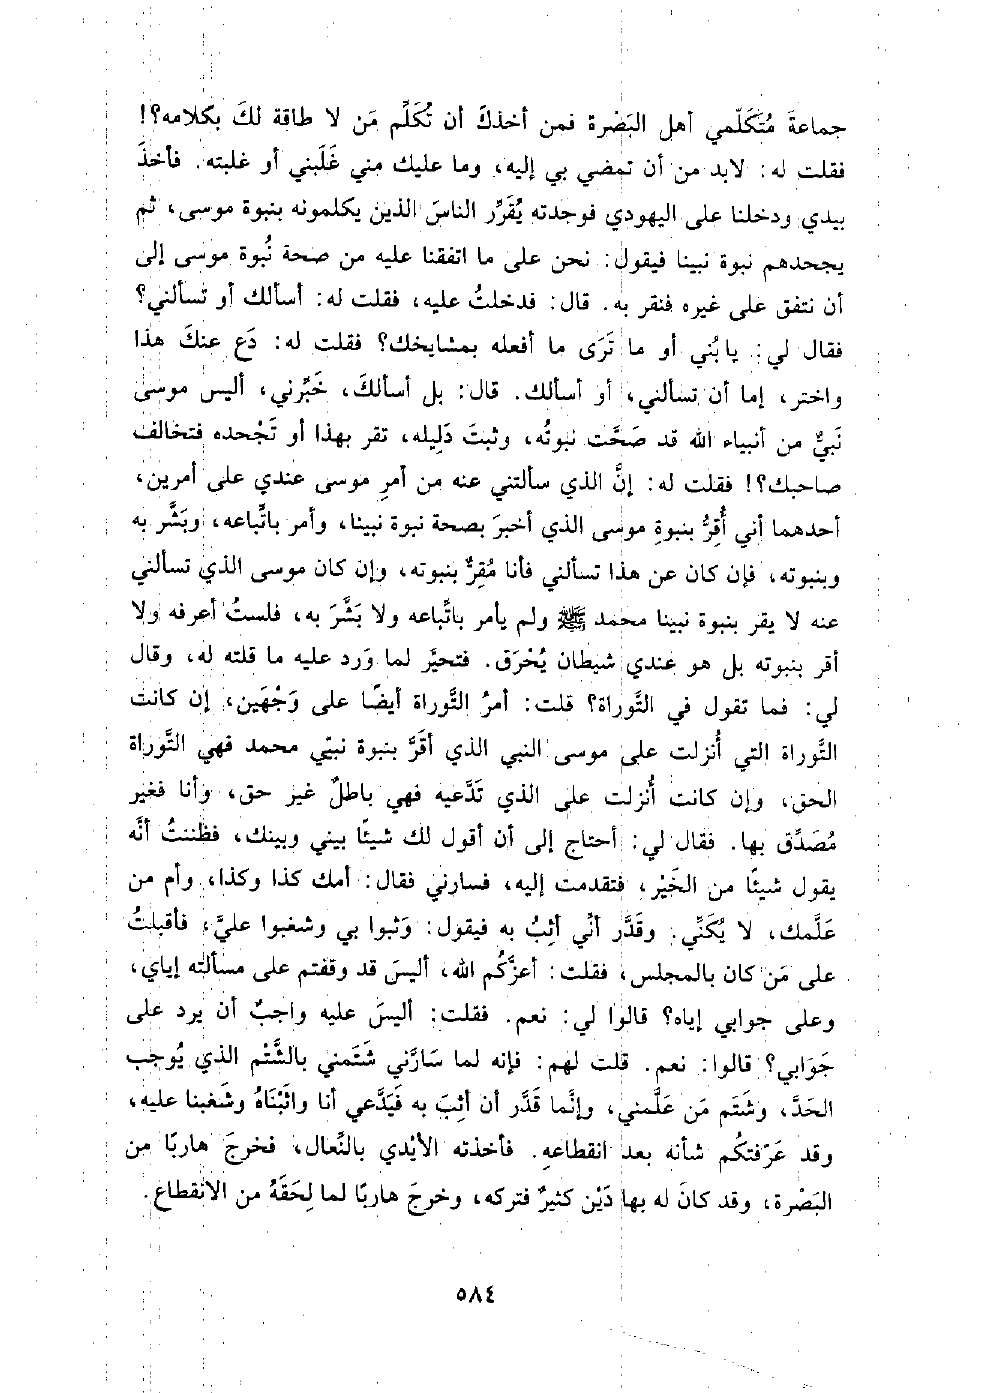 جماعةَ مُتَكَلّمي أهل البَصْرة فمن أخذكَ أن تُكَلِّم مَن لا طاقة لكَ بكلامه؟!
فقلت له: لابد من أن تمضي بي إليه، وما عليك مني غَلَبني أو غلبته. فأخذَ
بيدي ودخلنا على اليهودي فوجدته يُقَرِّر الناسَ الذين يكلمونه بنبوة موسى، ثم
يجحدهم نبوة نبينا فيقول: نحن على ما اتفقنا عليه من صحة نُبوة موسى إلى
أن نتفق على غيره فنقر به. قال: فدخلتُ عليه، فقلت له: أسألك أو تسألني؟
فقال لي: يا بُني أو ما تَرَى ما أفعله بمشايخك؟ فقلت له: دَع عنكَ هذا
واختر، إما أن تسألني، أو أسألك. قال: بل أسألكَ، خَبِّرني، أليس موسى
نَبيٌّ من أنبياء الله قد صَحَّت نبوتُه، وثبتَ دَلِيله، تقر بهذا أو تَجْحده فتخالف
صاحبك؟! فقلت له: إنَّ الذي سألتني عنه من أمرِ موسى عندي على أمرين،
أحدهما أني أُقِرُّ بنبوةِ موسى الذي أخبرَ بصحة نبوة نبينا، وأمر باتِّباعه، وبَشَّر به
وبنبوته، فإن كان عن هذا تسألني فأنا مُقِرٌّ بنبوته، وإن كان موسى الذي تسألني
عنه لا يقر بنبوة نبينا محمد ﷺ ولم يأمر باتِّباعه ولا بَشَّرَ به، فلستُ أعرفه ولا
أقر بنبوته بل هو عندي شيطان يُخْرَق. فتحيَّر لما وَرد عليه ما قلته له، وقال
لي: فما تقول في التَّوراة؟ قلت: أمرُ التَّوراة أيضًا على وَجْهَين، إن كانت
التَّوراة التي أُنزلت على موسى النبي الذي أقَرَّ بنبوة نبيّي محمد فهي التَّوراة
الحق، وإن كانت أُنزلت على الذي تَدَّعيه فهي باطلٌ غير حق، وأنا فغير
مُصَدِّق بها. فقال لي: أحتاج إلى أن أقول لك شيئًا بيني وبينك، فظننتُ أنَّه
يقول شيئًا من الخَيْر، فتقدمت إليه، فسارني فقال: أمك كذا وكذا، وأم من
عَلَّمك، لا يُكَنِّي. وقَدَّر أنِّي أثِبُ به فيقول: وَثبوا بي وشغبوا عليَّ، فأقبلتُ
على مَن كان بالمجلس، فقلت: أعزَّكُم الله، أليسَ قد وقفتم على مسألته إياي،
وعلى جوابي إياه؟ قالوا لي: نعم. فقلت: أليسَ عليه واجبٌ أن يرد على
جَوَابي؟ قالوا: نعم. قلت لهم: فإنه لما سَارَّني شَتَمني بالشَّتْم الذي يُوجب
الحَدَّ، وشَتَم مَن عَلَّمني، وإنَّما قَدَّر أن أثِبَ به فَيَدَّعي أنا واثَبْنَاهُ وشَغبنا عليه،
وقد عَرَّفتكُم شأنه بعد انقطاعه. فأخذته الأيْدي بالنِّعال، فخرجَ هاربًا من
البَصْرة، وقد كانَ له بها دَيْن كثيرٌ فتركه، وخرجَ هاربًا لما لحِقَهُ من الانقطاع.
٥٨٤